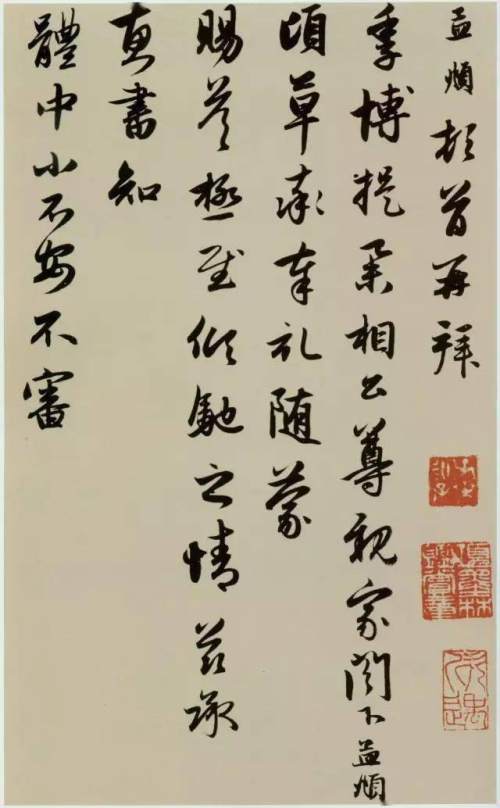 孟頫頓首再拜
季博提舉相公尊親家閣下孟頫
頃草率奉札随蒙
賜答極慰傾馳之情茲承
惠書知
體中小不安不審